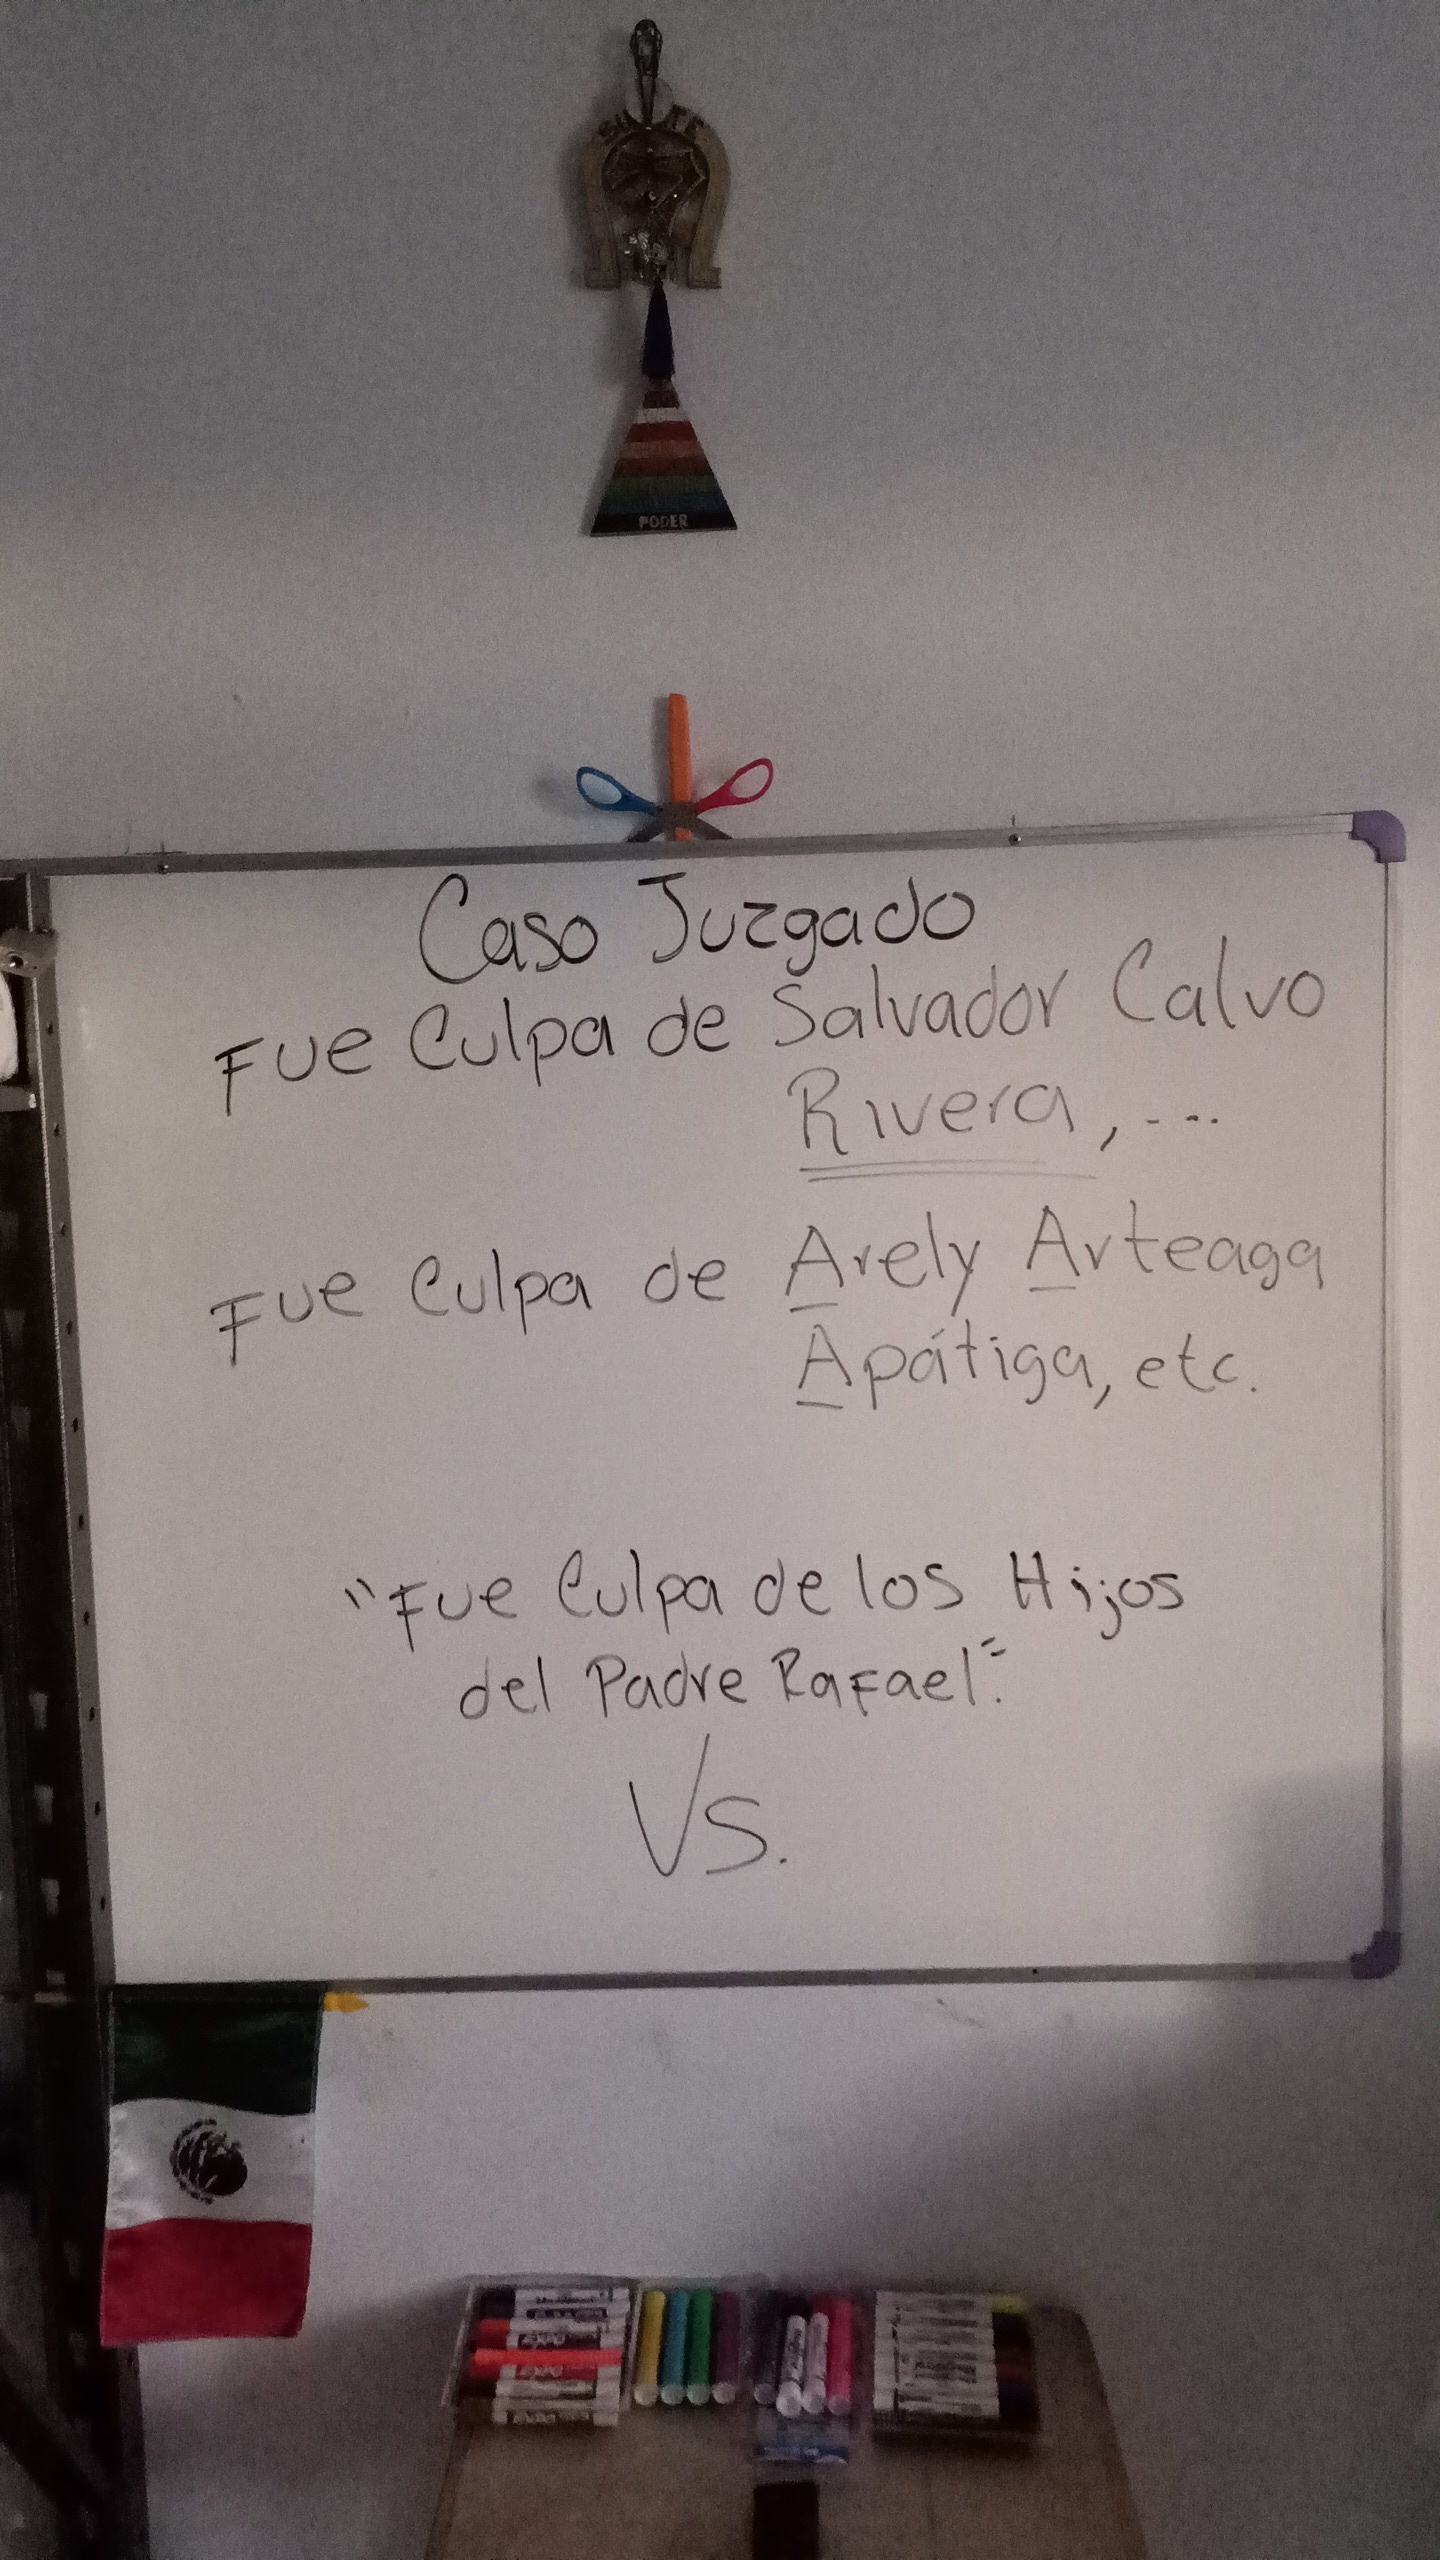 PODER
Caso Juzgado
Fue Culpa de Salvador Calvo
Rivera, ...
Fue Culpa de Arely Arteaga
Apátiga, etc.
"Fue Culpa de los Hijos
del Padre Rafael".
Vs.